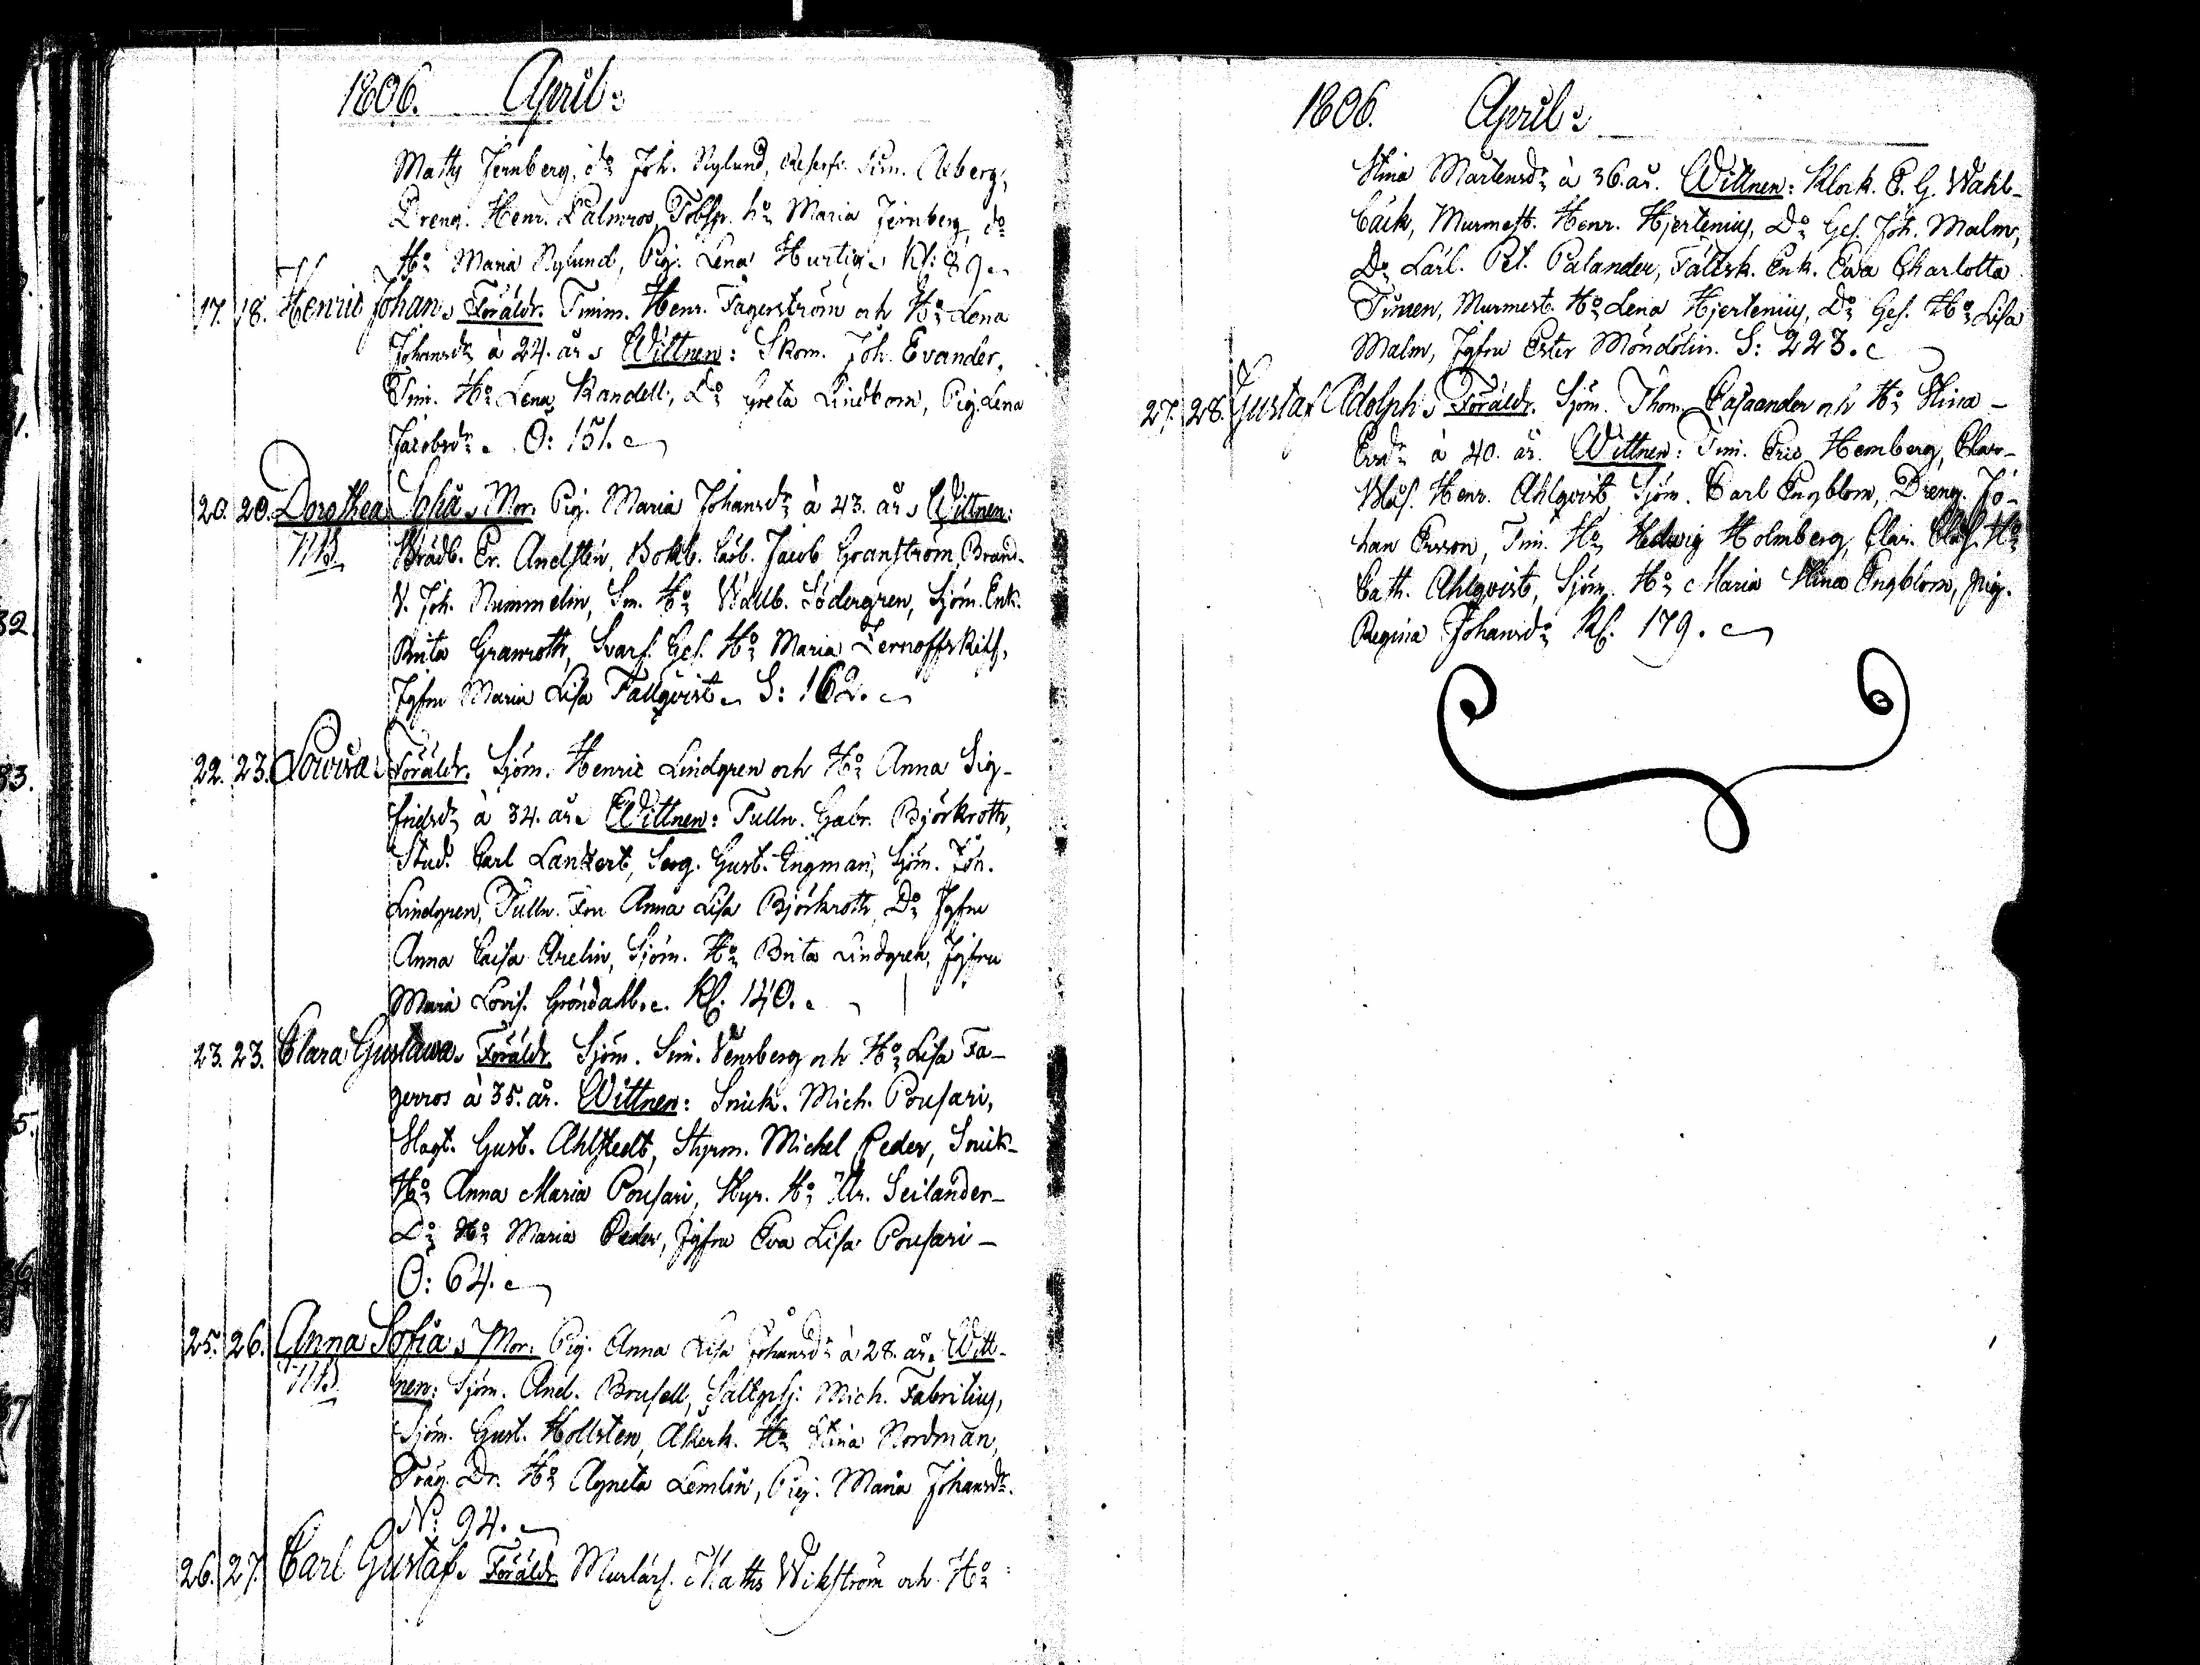 1806. April:
Maths Jernberg, do Joh. Nylund, Sim. Åberg,
Dreng. Henr. Palmros, Hu Maria Jernberg, do
Hu Maria Nylund, Pig. Lena Hurtig. Kl: 89.
17. 18. Henric Johan. Föräldr. Timm. Henr. Fagerström och Hu Lena
Johansdr à 24. år. Wittnen: Skom. Joh. Evander,
Tim. Hu Lena Randell, Do Greta Lindbom, Pig. Lena
Jacobsdr. Ö: 151.
20. 20. Dorothea Sofia. Mor. Pig. Maria Johansdr à 43. år. Wittnen:
NB. Jacob Granström, Brand-
V. Joh. Nummelin, Sm. Hu Walb. Södergren, Sjöm. Enk.
Brita Granroth, Svarf. Ges. Hu Maria
Jgfru Maria Lisa Fallqvist. S: 162.
22. 23. Lovisa. Föräldr. Sjöm. Henric Lindgren och Hu Anna Sig-
fridsdr à 34. år. Wittnen: Tulln. Gabr. Björkroth,
Stud. Carl Lankert, Serg. Gust. Engman, Sjöm. Joh.
Lindgren, Tulln. Fru Anna Lisa Björkroth, Do Jgfru
Anna Caisa Arelin, Sjöm. Hu Brita Lindgren, Jgfru
Maria Lovis. Gröndahl. Kl. 140.
23. 23. Clara Gustava. Föräldr. Sjöm. Sim. Vensberg och Hu Lisa Fa-
gerros à 35. år. Wittnen: Snick. Mich. Pousari,
Slagt. Gust. Ahlstedt, Styrm. Michel Peder, Snick-
Hu Anna Maria Pousari, Styr. Hu Ulr. Seilander-
Do Hu Maria Peder, Jgfru Eva Lisa Pousari-
Ö: 64.
25. 26. Anna Sofia. Mor. Pig. Anna Lisa Johansdr à 28. år. Witt-
NB. nen: Sjöm. And. Brusell, Mich. Fabritius,
Sjöm. Gust. Hollsten, Åkerk. Hu Stina Nordman,
Dr. Hu Agneta Lemlin, Pig. Maria Johansdr.
N: 94.
26. 27. Carl Gustaf. Föräldr. Murlärl. Maths Wikström och Hu
1806. April:
Stina Mårtensdr à 36. år. Wittnen: Klock. C. G. Wahl-
bäck, Murmest. Henr. Hjertenius, Do Ges. Joh. Malm,
Do Lärl. Pet. Palander, Fältsk. Enk. Eva Charlotta
Murmest. Hu Lena Hjertenius, Do Ges. Hu Lisa
Malm, Jgfru Ester Möndolin. S: 223.
27. 28. Gustaf Adolph. Föräldr. Sjöm. Thom. Casaander och Hu Stina-
Ersdr à 40. år. Wittnen: Tim. Eric Hemberg, Clar-
Blås. Henr. Ahlqvist, Sjöm. Carl Engblom, Dreng. Jo-
han Ersson, Tim. Hu Hedvig Holmberg, Clar. Blås. Hu
Cath. Ahlqvist, Sjöm. Hu Maria Stina Engblom, Pig.
Regina Johansdr. Kl. 179.